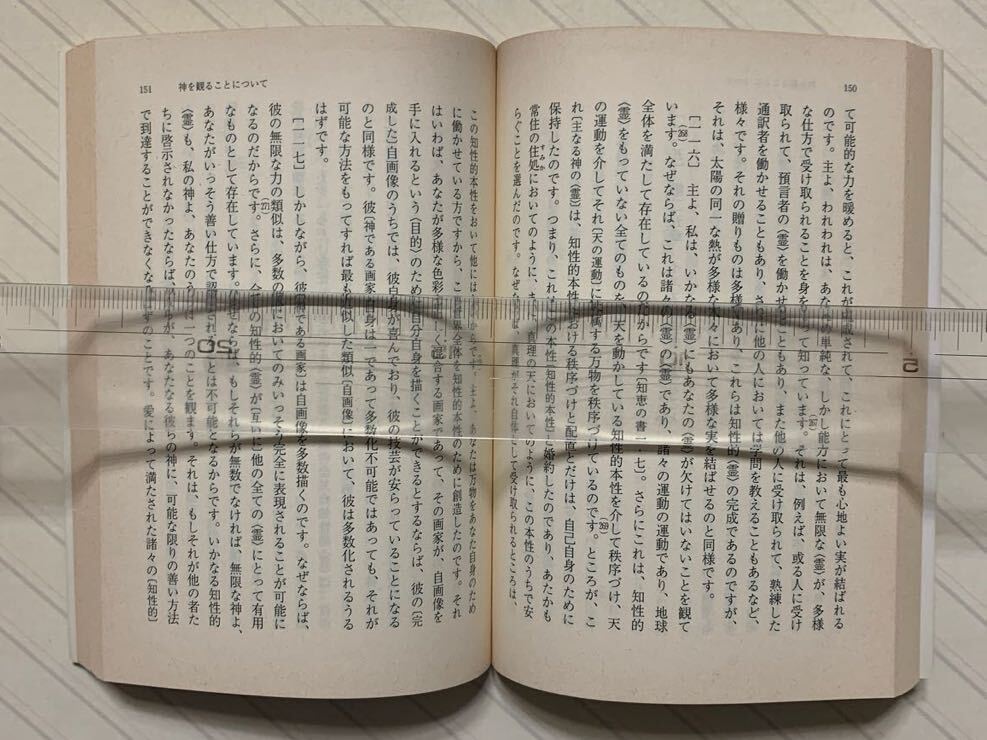 150
て可能的な力を暖めると、これが
されて、これにとって最も心地よい実が結ばれる
のです。主よ、われわれは、あなたの単純な、しかし能力において無限な〈霊〉が、多様
な仕方で受け取られることを身をもって知っています。それは、例えば、或る人に受け
取られて、預言者の〈霊〉を働かせることもあり、また他の人に受け取られて、熟練した
通訳者を働かせることもあり、さらに他の人においては学問を教えることもあるなど、
様々です。それの贈りものは多様であり、これらは知性的〈霊〉の完成であるのですが、
それは、太陽の同一な熱が多様な木々において多様な実を結ばせるのと同様です。
［一一六］ 主よ、私は、いかなる〈霊〉にもあなたの〈霊〉が欠けてはいないことを観て
います。なぜならば、これは諸々の〈霊〉の〈霊〉であり、諸々の運動の運動であり、地球
全体を満たして存在しているのだからです［知恵の書一・七］。さらにこれは、知性的
〈霊〉をもっていない全てのものを、天を動かしている知性的本性を介して秩序づけ、天
の運動を介してそれ［天の運動］に従属する万物を秩序づけているのです。ところが、こ
［主なる神の〈霊〉］は、知性的本性における秩序づけと配置とだけは、自己自身のために
保持したのです。つまり、これはこの本性［知性的本性］と婚約したのであり、あたかも
常住の住処においてのように、また真理の天においてのように、この本性のうちで安
らぐことを選んだのです。なぜならば、真理がそれ自体として受け取られるところは、
151
神を観ることについて
この知性的本性をおいて他にはないからです。主よ、あなたは万物をあなた自身のため
に働かせている方ですから、この世界全体を知性的本性のために創造したのです。それ
はいわば、あなたが多様な色彩を
しく混合する画家であって、その画家が、自画像を
手に入れるという［目的］のために自分自身を描くことができるとするならば、彼の［完
成した］自画像のうちでは、彼自身が喜んでおり、彼の技芸が安らっていることになる
のと同様です。彼［神である画家］自身は一であって多数化不可能ではあっても、それが
可能な方法をもってすれば最も近似した類似［自画像］において、彼は多数化されうる
はずです。
［一一七］ しかしながら、彼［神である画家］は自画像を多数描くのです。なぜならば、
彼の無限な力の類似は、多数の像においてのみいっそう完全に表現されることが可能に
なるのだからです。さらに、全ての知性的〈霊〉が［互いに］他の全ての〈霊〉にとって有用
なものとして存在しています。なぜならば、もしそれらが無数でなければ、無限な神よ、
あなたがいっそう善い仕方で認識されることは不可能となるからです。いかなる知性的
〈霊〉も、私の神よ、あなたのうちに一つのことを観ます。それは、もしそれが他の者た
ちに啓示されなかったならば、彼らが、あなたなる彼らの神に、可能な限りの善い方法
で到達することができなくなるはずのことです。愛によって満たされた諸々の［知性的］
50
5